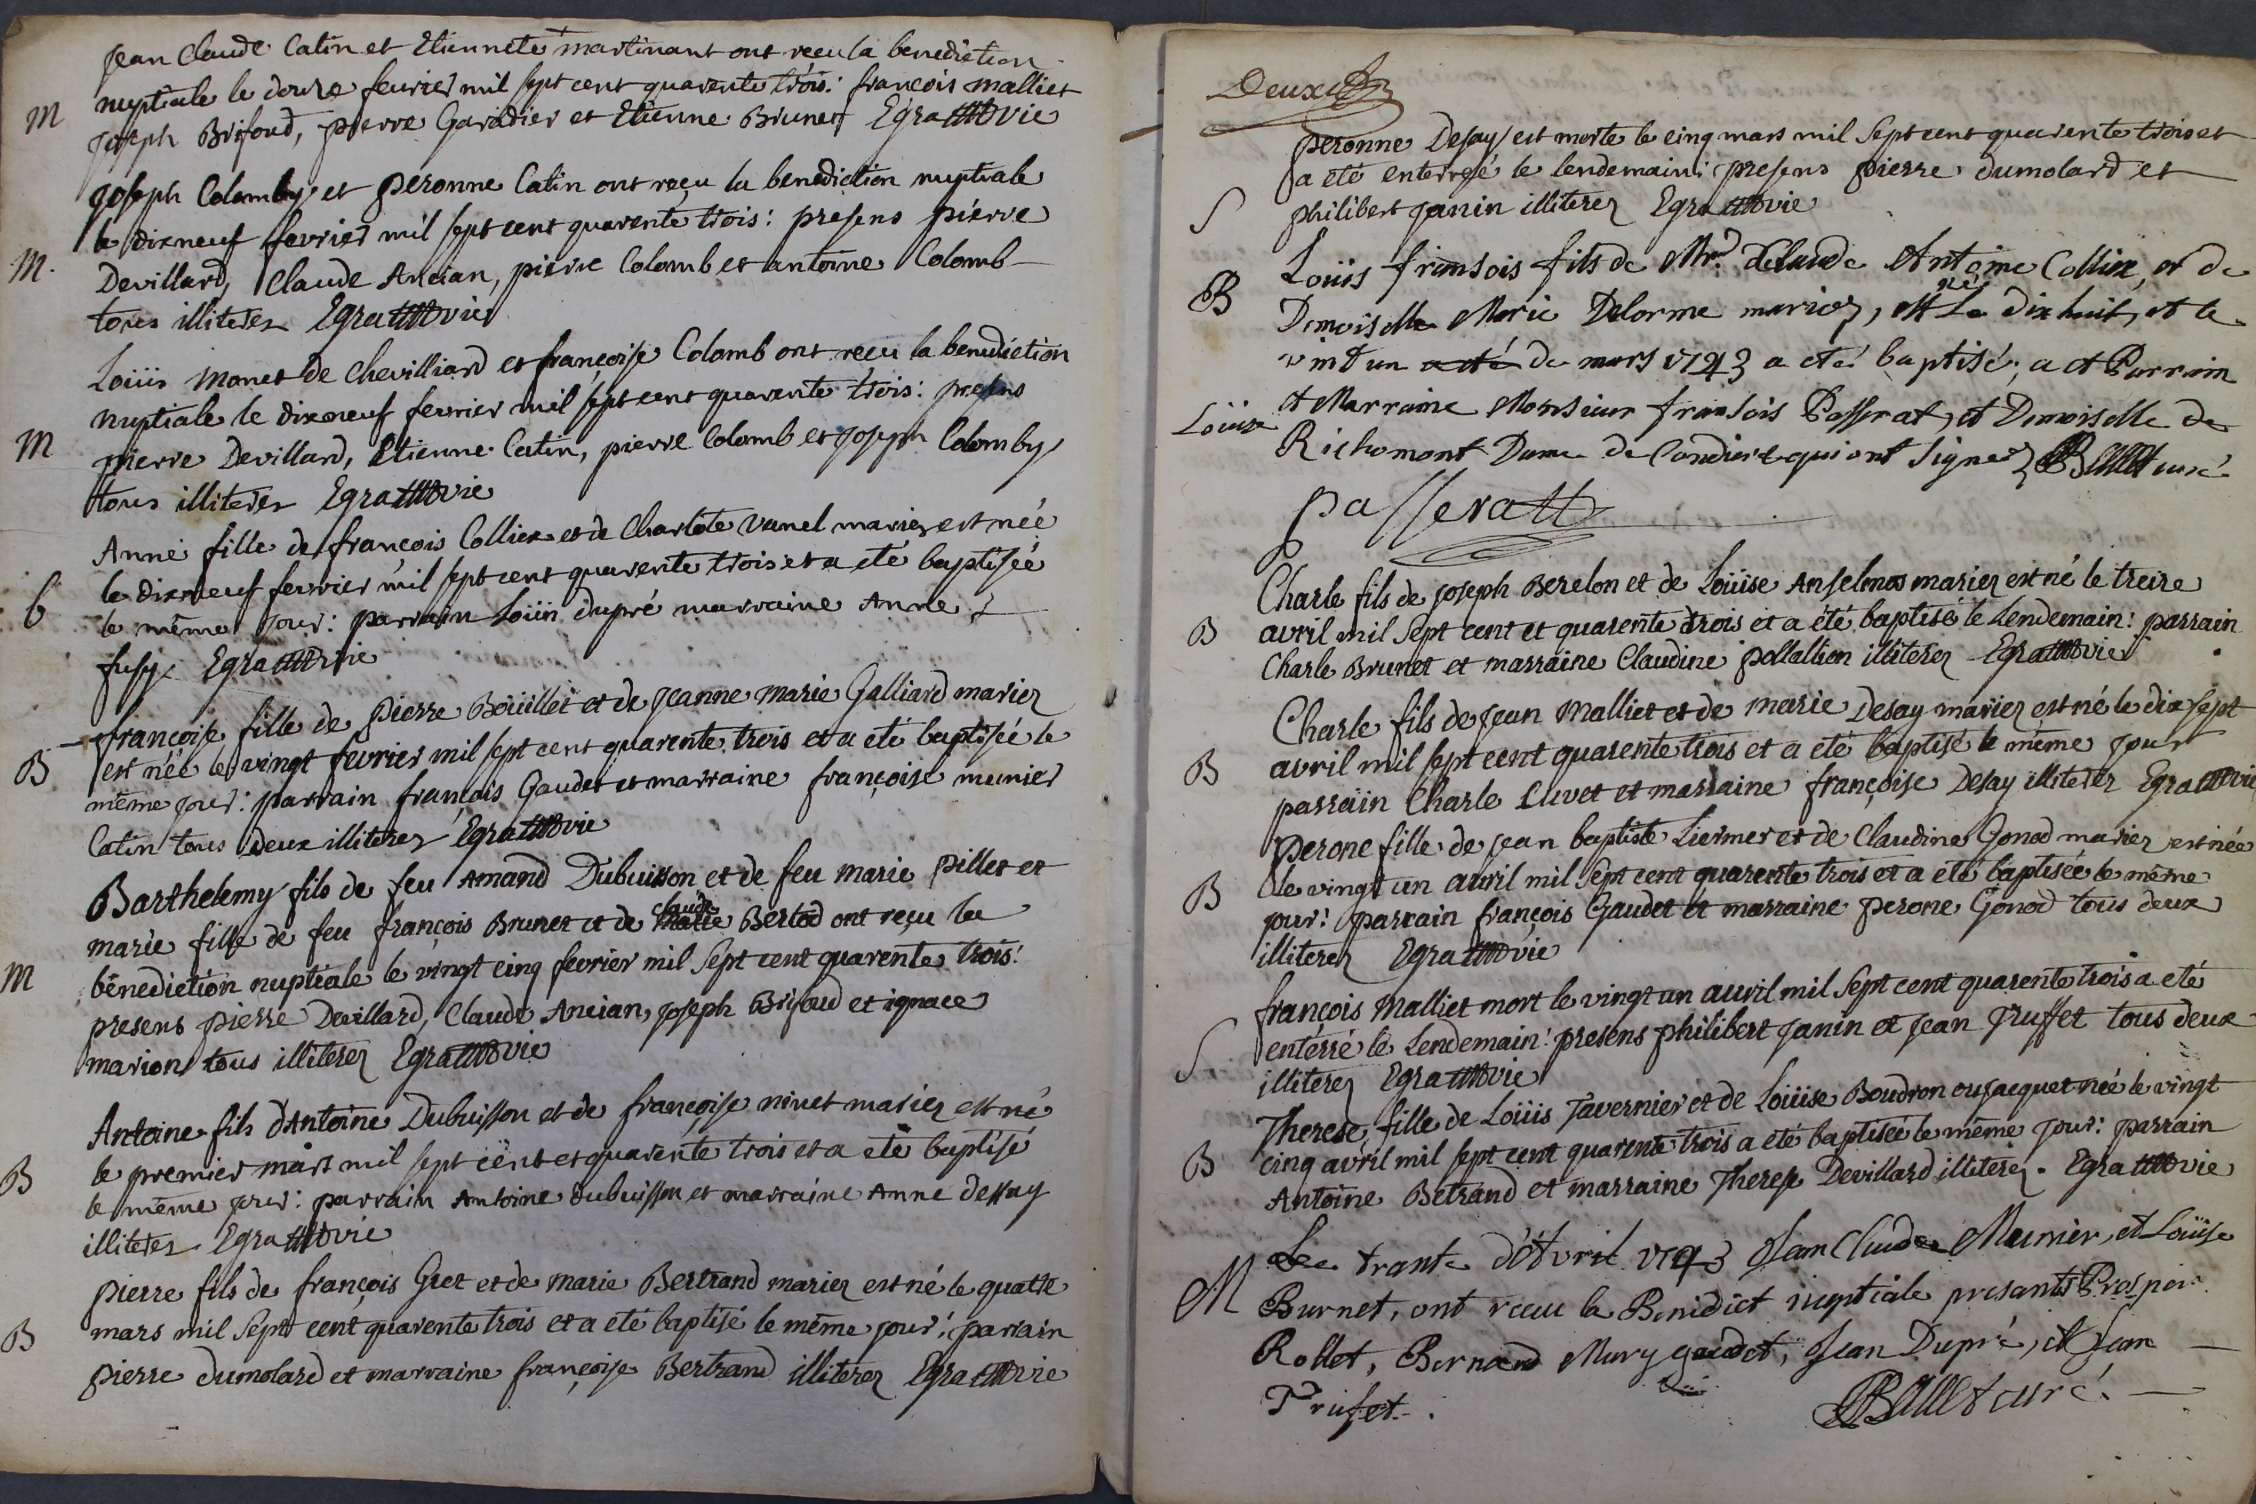 Jean Claude Catin et Etiennete martinant ont reçu la benediction
nuptiale le douze fevrier mil sept cent quarente trois: françois malliet
M
joseph Brifoud, pierre Garadier et Etienne Brunet Egra vie
joseph Colomby et peronne Catin ont reçu la benediction nuptiale
le dixneuf fevrier mil sept cent quarente trois: presens pierre
M.
Devillard, Claude Ancian, pierre Colomb et antoine Colomb
tous illiterez Egra vie
Loüis monet de Chevilliard et françoise Colomb ont reçu la benediction
nuptiale le dixneuf fevrier mil sept cent quarente trois: presens
M
pierre Devillard, Etienne Catin, pierre Colomb et joseph Colomby
tous illiterez Egra vie
Anne fille de françois Colliex et de Charlote vanel mariez est née
le dixneuf fevrier mil sept cent quarente trois et a été baptisée
b
le même jour: parrain Loüis dupré marraine Anne
fusy Egra vie
françoise fille de pierre Boüillet et de jeanne marie Galliard mariez
B
est née le vingt fevrier mil sept cent quarente trois et a été baptisée le
même jour: parrain françois Gaudet et marraine françoise munier
Catin tous deux illiterez Egra vie
Barthelemy fils de feu Amand Dubuisson et de feu marie pillet et
claude
marie fille de feu françois Brunet et de marie Bertod ont reçu la
M
bénediction nuptiale le vingt cinq fevrier mil sept cent quarente trois:
presens pierre Devillard, Claude Ancian, joseph Brifoud et ignace
marion tous illiterez Egra vie
Antoine fils d'Antoine Dubuisson et de françoise ninet mariez est né
le premier mars mil sept cent et quarente trois et a été baptisé
B
le même jour: parrain Antoine dubuisson et marraine Anne dessay
illiterez Egra vie
pierre fils de françois Gret et de marie Bertrand mariez est né le quatre
B
mars mil sept cent quarente trois et a été baptisé le même jour: parrain
pierre dumolard et marraine françoise Bertrand illiterez Egra vie
Deux
peronne Desay est morte le cinq mars mil sept cent quarente trois et
a été enterré le lendemain: presens pierre dumolard et
S
philibert janin illiterez Egra vie
Loüis fransois fils de Mr. Claude Antoine Colliex, et de
B
né
Demoiselle Marie Delorme mariez, et Le dix huit, et le
vint un a eté de mars 1743 a eté baptisé, a et Parrain
Loüis
et Marraine Monsieur fransois Passerat, et Demoiselle de
Richemont Dame de Condiere qui ont signez Ballet curé
passerat
Charle fils de joseph Berelon et de Loüise Anselmos mariez est né le treize
B
avril mil sept cent et quarente trois et a été baptisé le Lendemain: parrain
Charle Brunet et marraine Claudine pollallion illiterez Egra vie
Charle fils de jean malliet et de marie Desay mariez est né le dix sept
B
avril mil sept cent quarente trois et a été baptisé le même jour
parrain Charle Livet et marraine françoise Desay illiterez Egra vie
perone fille de jean baptiste Liermet et de Claudine Gonod mariez est née
B
le vingt un avril mil sept cent quarente trois et a été baptisée le même
jour: parrain françois Gaudet et marraine perone Gonod tous deux
illiterez Egra vie
françois malliet mort le vingt un avril mil sept cent quarente trois a été
S
enterré le Lendemain: presens philibert janin et jean Truffet tous deux
illiterez Egra vie
Therese fille de Loüis Tavernier et de Loüise Boudron ou jacquet née le vingt
B
cinq avril mil sept cent quarente trois a été baptisée le même jour: parrain
Antoine Betrand et marraine Therese Devillard illiterez. Egra vie
Le trante d'Avril 1743 Jean Claude Meunier, et Loüise
M
Burnet, ont receu la Benidict nuptiale presants Prosper
Rollet, Bernard Mury gaudet, Jean Dupré, et Jean
Trufet.
Ballet curé.